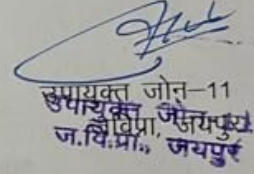 उपायुक्त जोन-11
उपायुक्त जोन
जविप्रा, जयपुर
ज.वि.प्रा., जयपुर